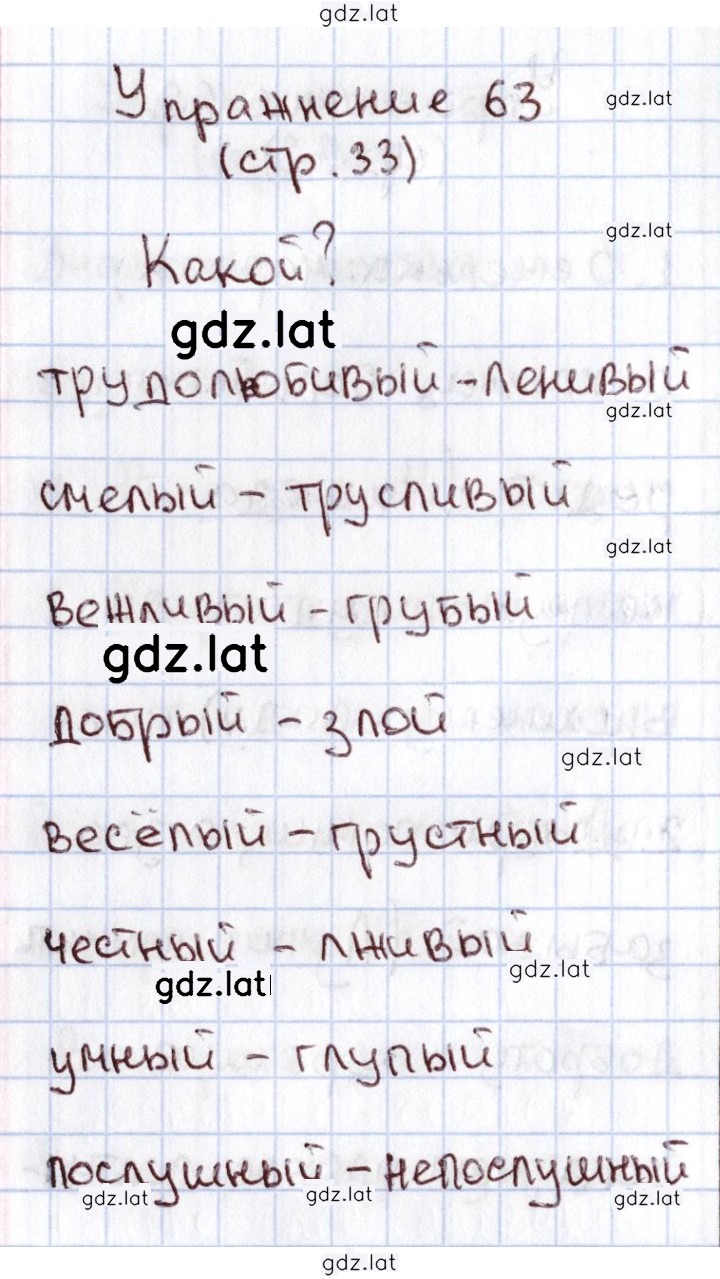 gdz.lat
Упражнение 63
gdz.lat
(стр. 33)
Какой?
gdz.lat
gdz.lat
трудолюбивый - ленивый
gdz.lat
смелый - трусливый
gdz.lat
вежливый - грубый
gdz.lat
добрый - злой
gdz.lat
весёлый - грустный
честный - лживый
gdz.lat
gdz.lat
умный - глупый
послушный - непослушный
gdz.lat gdz.lat gdz.lat
gdz.lat